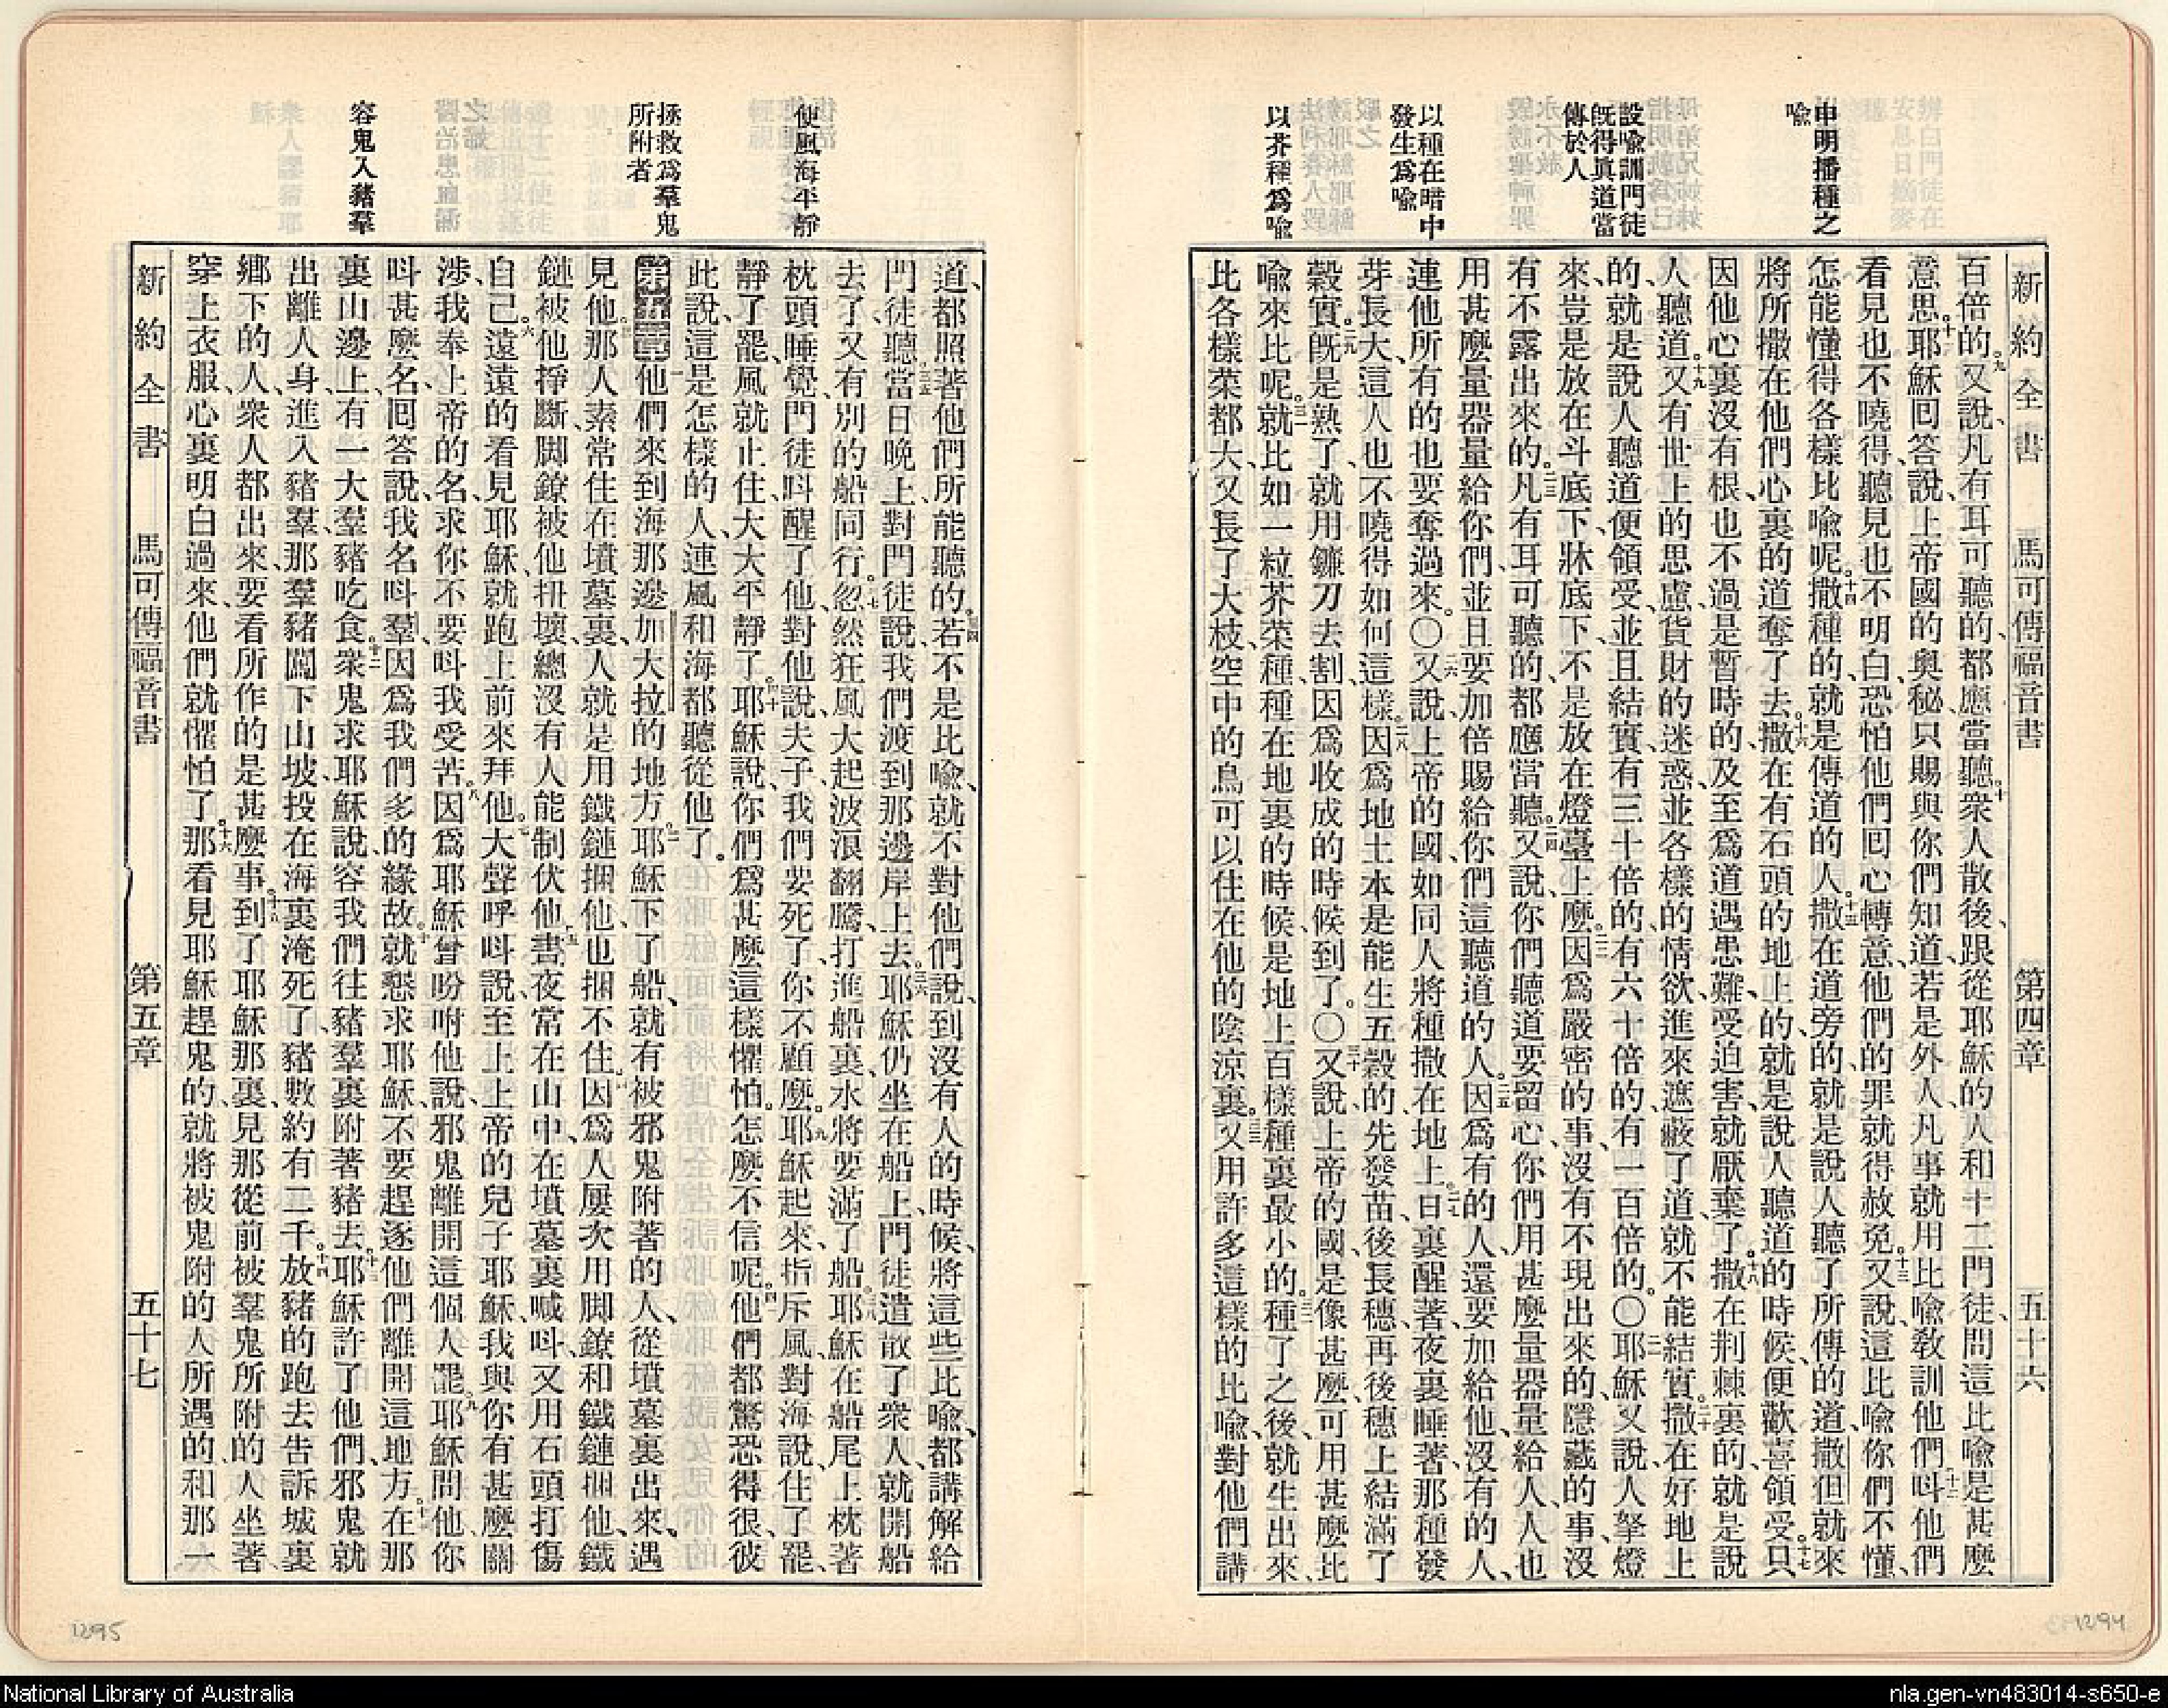 新約全書 馬可傳福音書 第四章 五十六
申明播種之
喩
設喩訓門徒
旣得眞道當
傳於人
以種在暗中
發生爲喩
以芥種爲喩
百倍的。九又說、凡有耳可聽的、都應當聽。十衆人散後、跟從耶穌的人和十二門徒、問這比喩是甚麼
意思。十一耶穌囘答說、上帝國的奧秘、只賜與你們知道、若是外人、凡事就用比喩敎訓他們、十二呌他們
看見也不曉得、聽見也不明白、恐怕他們囘心轉意、他們的罪就得赦免。十三又說、這比喩你們不懂、
怎能懂得各樣比喩呢。十四撒種的、就是傳道的人。十五撒在道旁的、就是說人聽了所傳的道、撒但就來
將所撒在他們心裏的道奪了去。十六撒在有石頭的地上的、就是說人聽道的時候、便歡喜領受。十七只
因他心裏沒有根、也不過是暫時的、及至爲道遇患難、受迫害、就厭棄了。十八撒在荆棘裏的、就是說
人聽道。十九又有世上的思慮、貨財的迷惑、並各樣的情欲、進來遮蔽了道、就不能結實。二十撒在好地上
的、就是說人聽道便領受、並且結實、有三十倍的、有六十倍的、有一百倍的。〇二一耶穌又說、人拏燈
來、豈是放在斗底下、牀底下、不是放在燈臺上麼。二二因爲嚴密的事、沒有不現出來的、隱藏的事、沒
有不露出來的。二三凡有耳可聽的、都應當聽。二四又說、你們聽道要留心、你們用甚麼量器量給人、人也
用甚麼量器量給你們、並且要加倍賜給你們這聽道的人。二五因爲有的人、還要加給他、沒有的人、
連他所有的也要奪過來。〇二六又說、上帝的國、如同人將種撒在地上。二七日裏醒著、夜裏睡著、那種發
芽長大、這人也不曉得如何這樣。二八因爲地土本是能生五穀的、先發苗、後長穗、再後穗上結滿了
穀實。二九旣是熟了、就用鐮刀去割、因爲收成的時候到了。〇三十又說、上帝的國、是像甚麼、可用甚麼比
喩來比呢。三一就比如一粒芥菜種、種在地裏的時候、是地上百樣種裏最小的。三二種了之後、就生出來、
比各樣菜都大、又長了大枝、空中的鳥可以住在他的陰涼裏。三三又用許多這樣的比喩、對他們講
使風海平靜
拯救爲羣鬼
所附者
容鬼入豬羣
道、都照著他們所能聽的。三四若不是比喩、就不對他們說、到沒有人的時候、將這些比喩、都講解給
門徒聽。三五當日晚上、對門徒說、我們渡到那邊岸上去。三六耶穌仍坐在船上、門徒遣散了衆人、就開船
去了、又有別的船同行。三七忽然狂風大起、波浪翻騰、打進船裏、水將要滿了船。三八耶穌在船尾上枕著
枕頭睡覺、門徒呌醒了他、對他說、夫子、我們要死了、你不顧麼。三九耶穌起來、指斥風、對海說、住了罷、
靜了罷、風就止住、大大平靜了。四十耶穌說、你們爲甚麼這樣懼怕。怎麼不信呢。四一他們都驚恐得很、彼
此說、這是怎樣的人、連風和海都聽從他了。
第五章一他們來到海那邊、加大拉的地方。二耶穌下了船、就有被邪鬼附著的人、從墳墓裏出來、遇
見他。三那人素常住在墳墓裏、人就是用鐵鏈捆他、也捆不住。四因爲人屢次用脚鐐和鐵鏈捆他、鐵
鏈被他掙斷、脚鐐被他扭壞、總沒有人能制伏他。五晝夜常在山中、在墳墓裏喊呌、又用石頭打傷
自己。六遠遠的看見耶穌、就跑上前來拜他。七大聲呼呌說、至上上帝的兒子耶穌、我與你有甚麼關
涉、我奉上帝的名、求你不要呌我受苦。八因爲耶穌曾吩咐他說、邪鬼離開這個人罷。九耶穌問他、你
呌甚麼名、囘答說、我名呌羣、因爲我們多的緣故。十就懇求耶穌、不要趕逐他們離開這地方。十一在那
裏山邊上、有一大羣豬吃食。十二衆鬼求耶穌說、容我們往豬羣裏附著豬去。十三耶穌許了他們、邪鬼就
出離人身、進入豬羣、那羣豬闖下山坡、投在海裏淹死了、豬數約有二千。十四放豬的跑去告訴城裏
鄉下的人、衆人都出來、要看所作的是甚麼事。十五到了耶穌那裏、見那從前被羣鬼所附的人坐著、
穿上衣服、心裏明白過來、他們就懼怕了。十六那看見耶穌趕鬼的、就將被鬼附的人所遇的、和那一
新約全書 馬可傳福音書 第五章 五十七
1295
1294
National Library of Australia
nla.gen-vn483014-s650-e